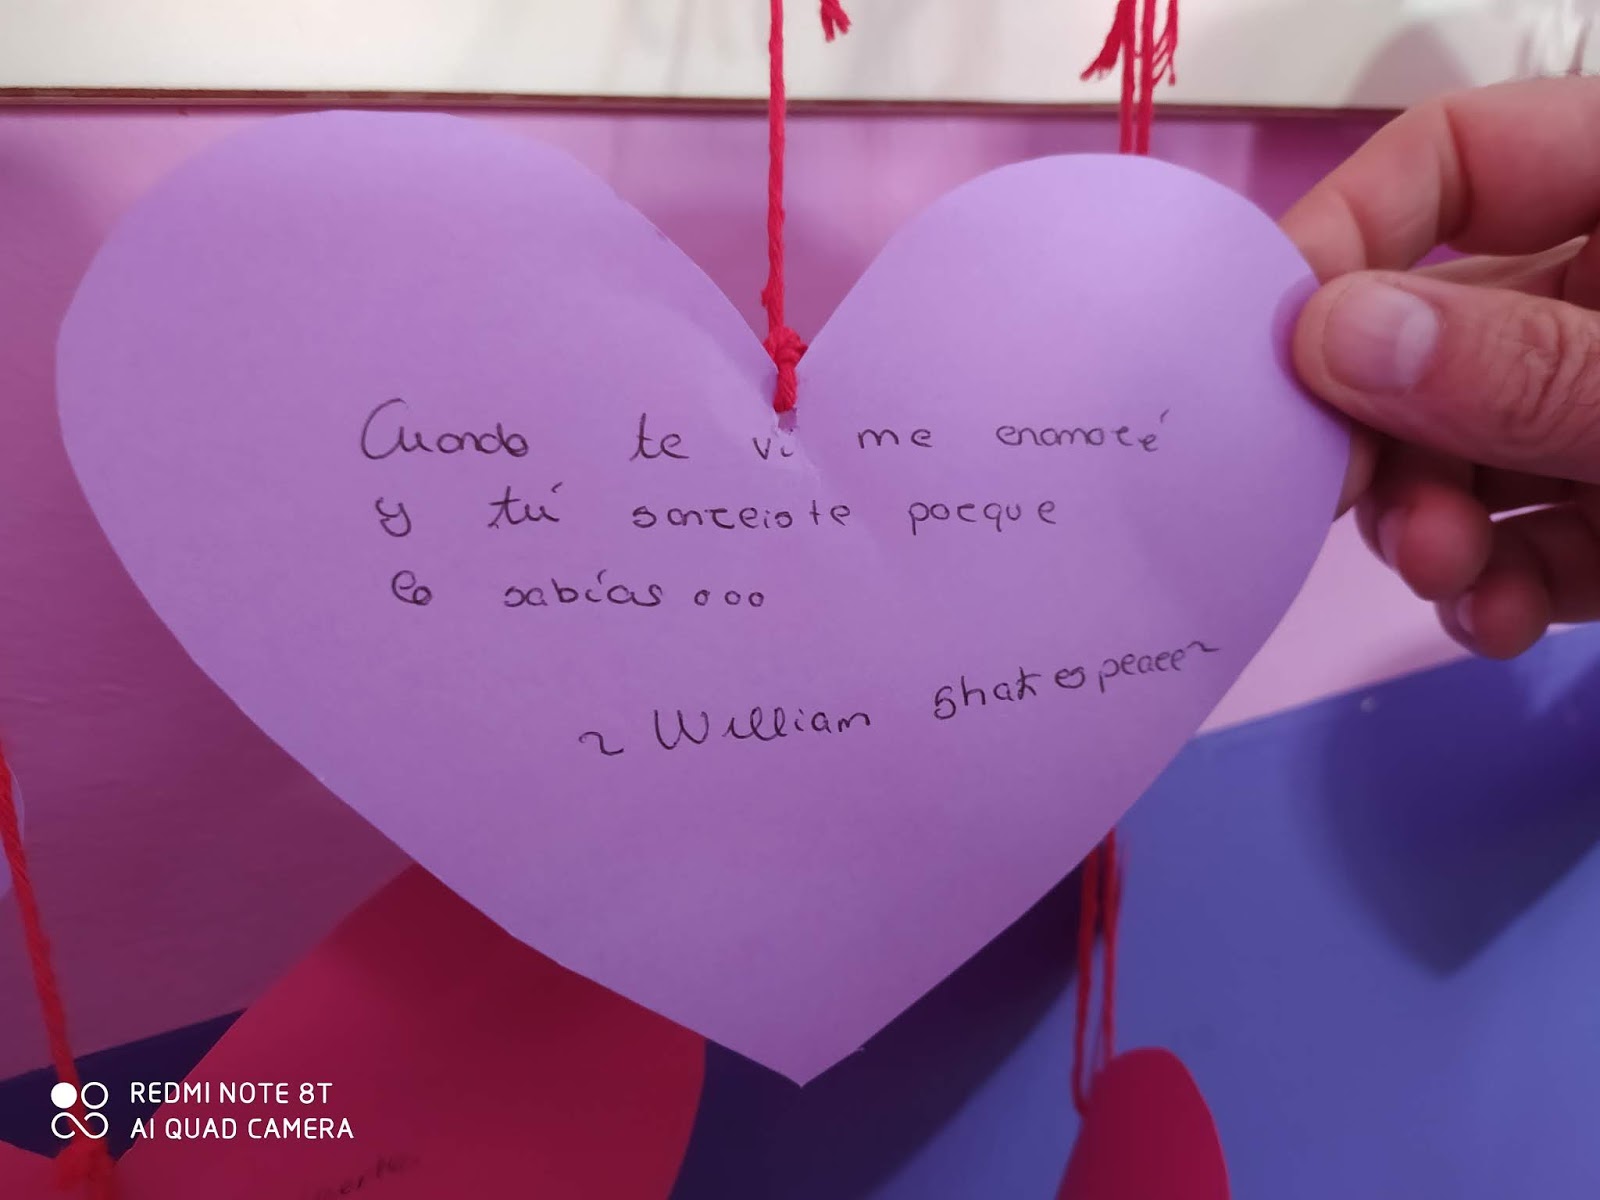 Cuando te vi me enamoré
y tú sonreiste porque
lo sabías...
~ William Shakespeare ~
REDMI NOTE 8T
AI QUAD CAMERA